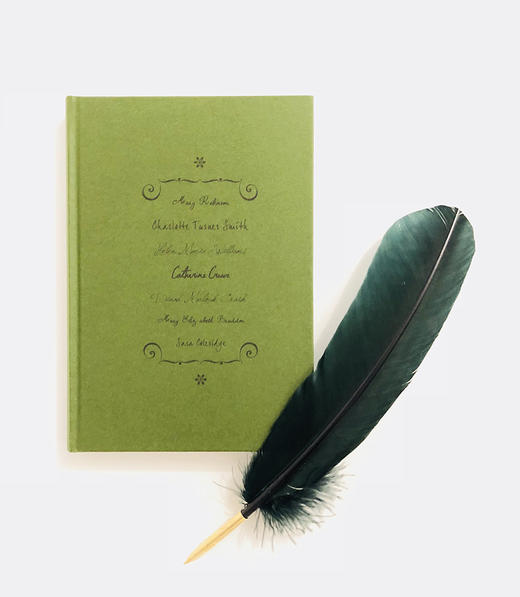 Mary Robinson
Charlotte Turner Smith
Helen Maria Williams
Catherine Crowe
Dinah Mulock Craik
Mary Elizabeth Braddon
Sara Coleridge